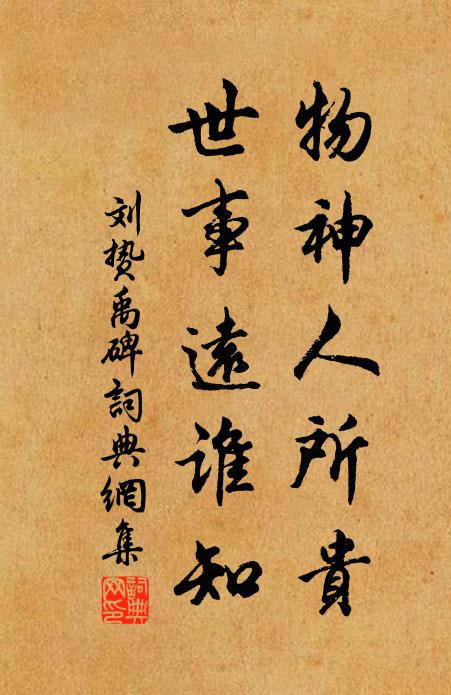 物神人所貴
世事遠誰知
刘摯禹碑詞典網集
詞典網印